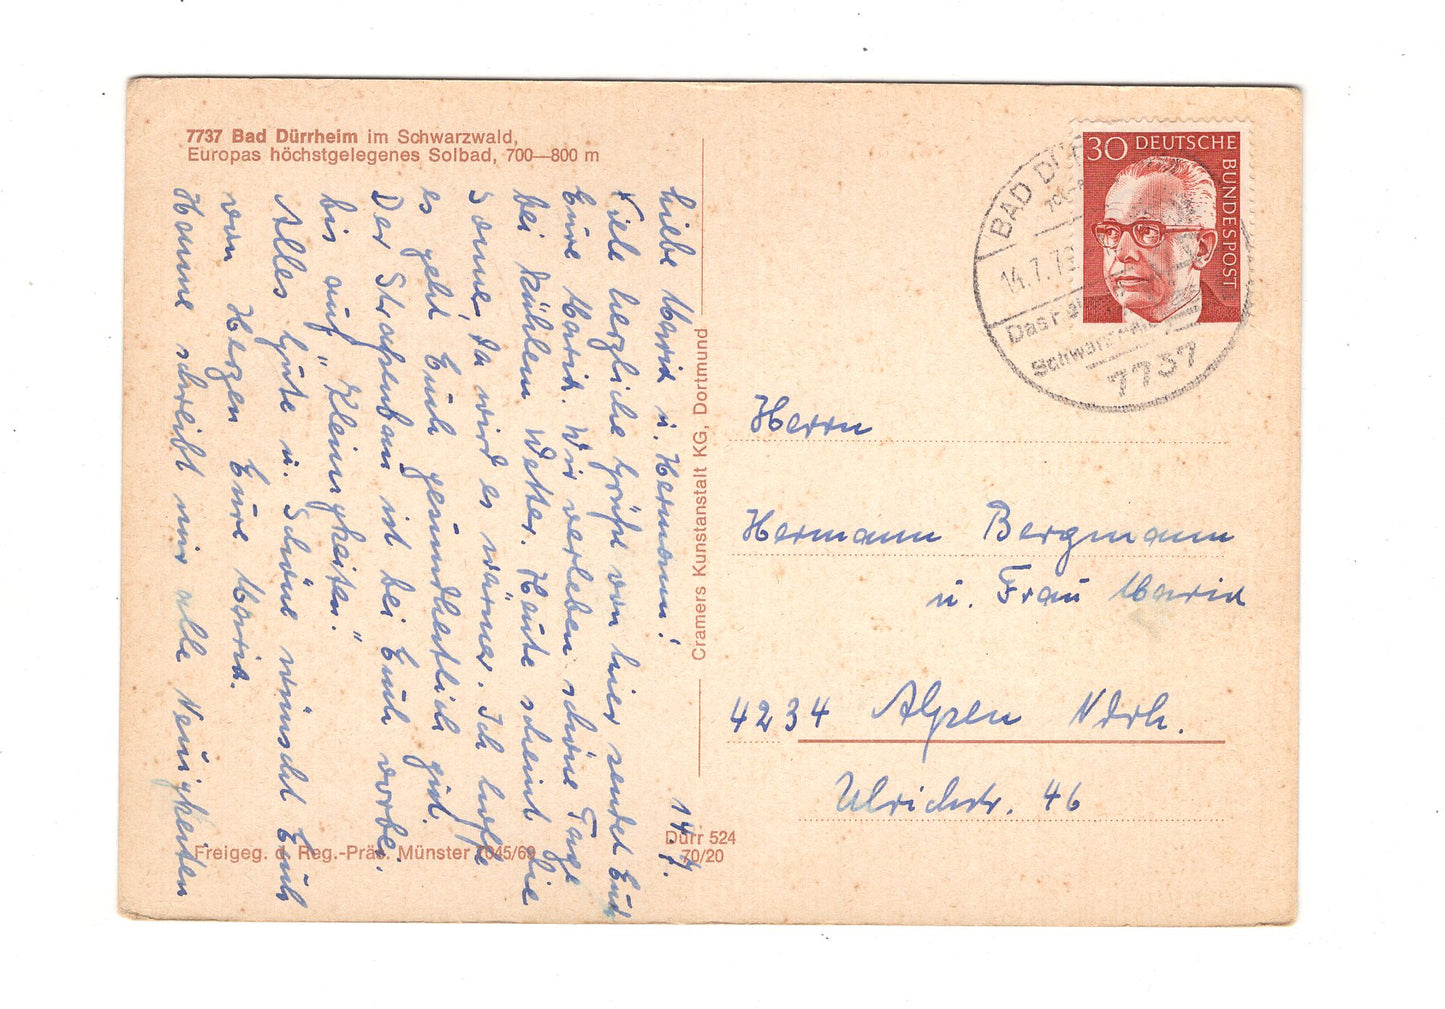 7737 Bad Dürrheim im Schwarzwald,
Europas höchstgelegenes Solbad, 700—800 m
14.7.
Liebe Maria u. Hermann!
Viele herzliche Grüße von hier sendet Euch
Eure Maria. Wir verleben schöne Tage
bei kühlem Wetter. Heute scheint die
Sonne, da wird es wärmer. Ich hoffe
es geht Euch gesundheitlich gut.
Der Straßenbau ist bei Euch vorbei
bis auf „Kleinigkeiten."
Alles Gute u. Schöne wünscht Euch
von Herzen Eure Maria.
Hanne schreibt mir alle Neuigkeiten
Freigeg. d. Reg.-Präs. Münster
Cramers Kunstanstalt KG, Dortmund
Dürr 524
70/20
30 DEUTSCHE
BUNDESPOST
BAD
14.7.
7737
Herrn
Hermann Bergmann
u. Frau Maria
4234 Alpen Ndrh.
Ulrichstr. 46